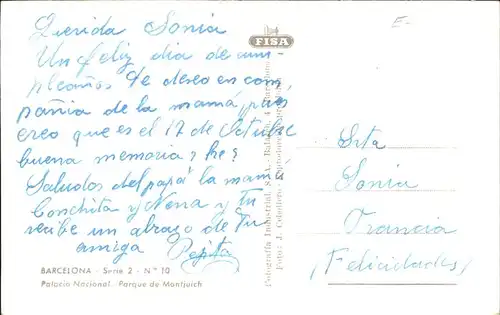 Querida Sonia
Un feliz dia de cum-
pleaños te deseo en com
pañia de la mamá, pues
creo que es el 17 de Octubre
buena memoria, he?
Saludos del papá la mamá
Conchita y Nena y tu
recibe un abrazo de tu
amiga Pepita
BARCELONA - Serie 2 - N.º 10
Palacio Nacional - Parque de Montjuich
FISA
Fotografía Industrial, S.A.
E-
Srta
Sonia
Francia
¡Felicidades!